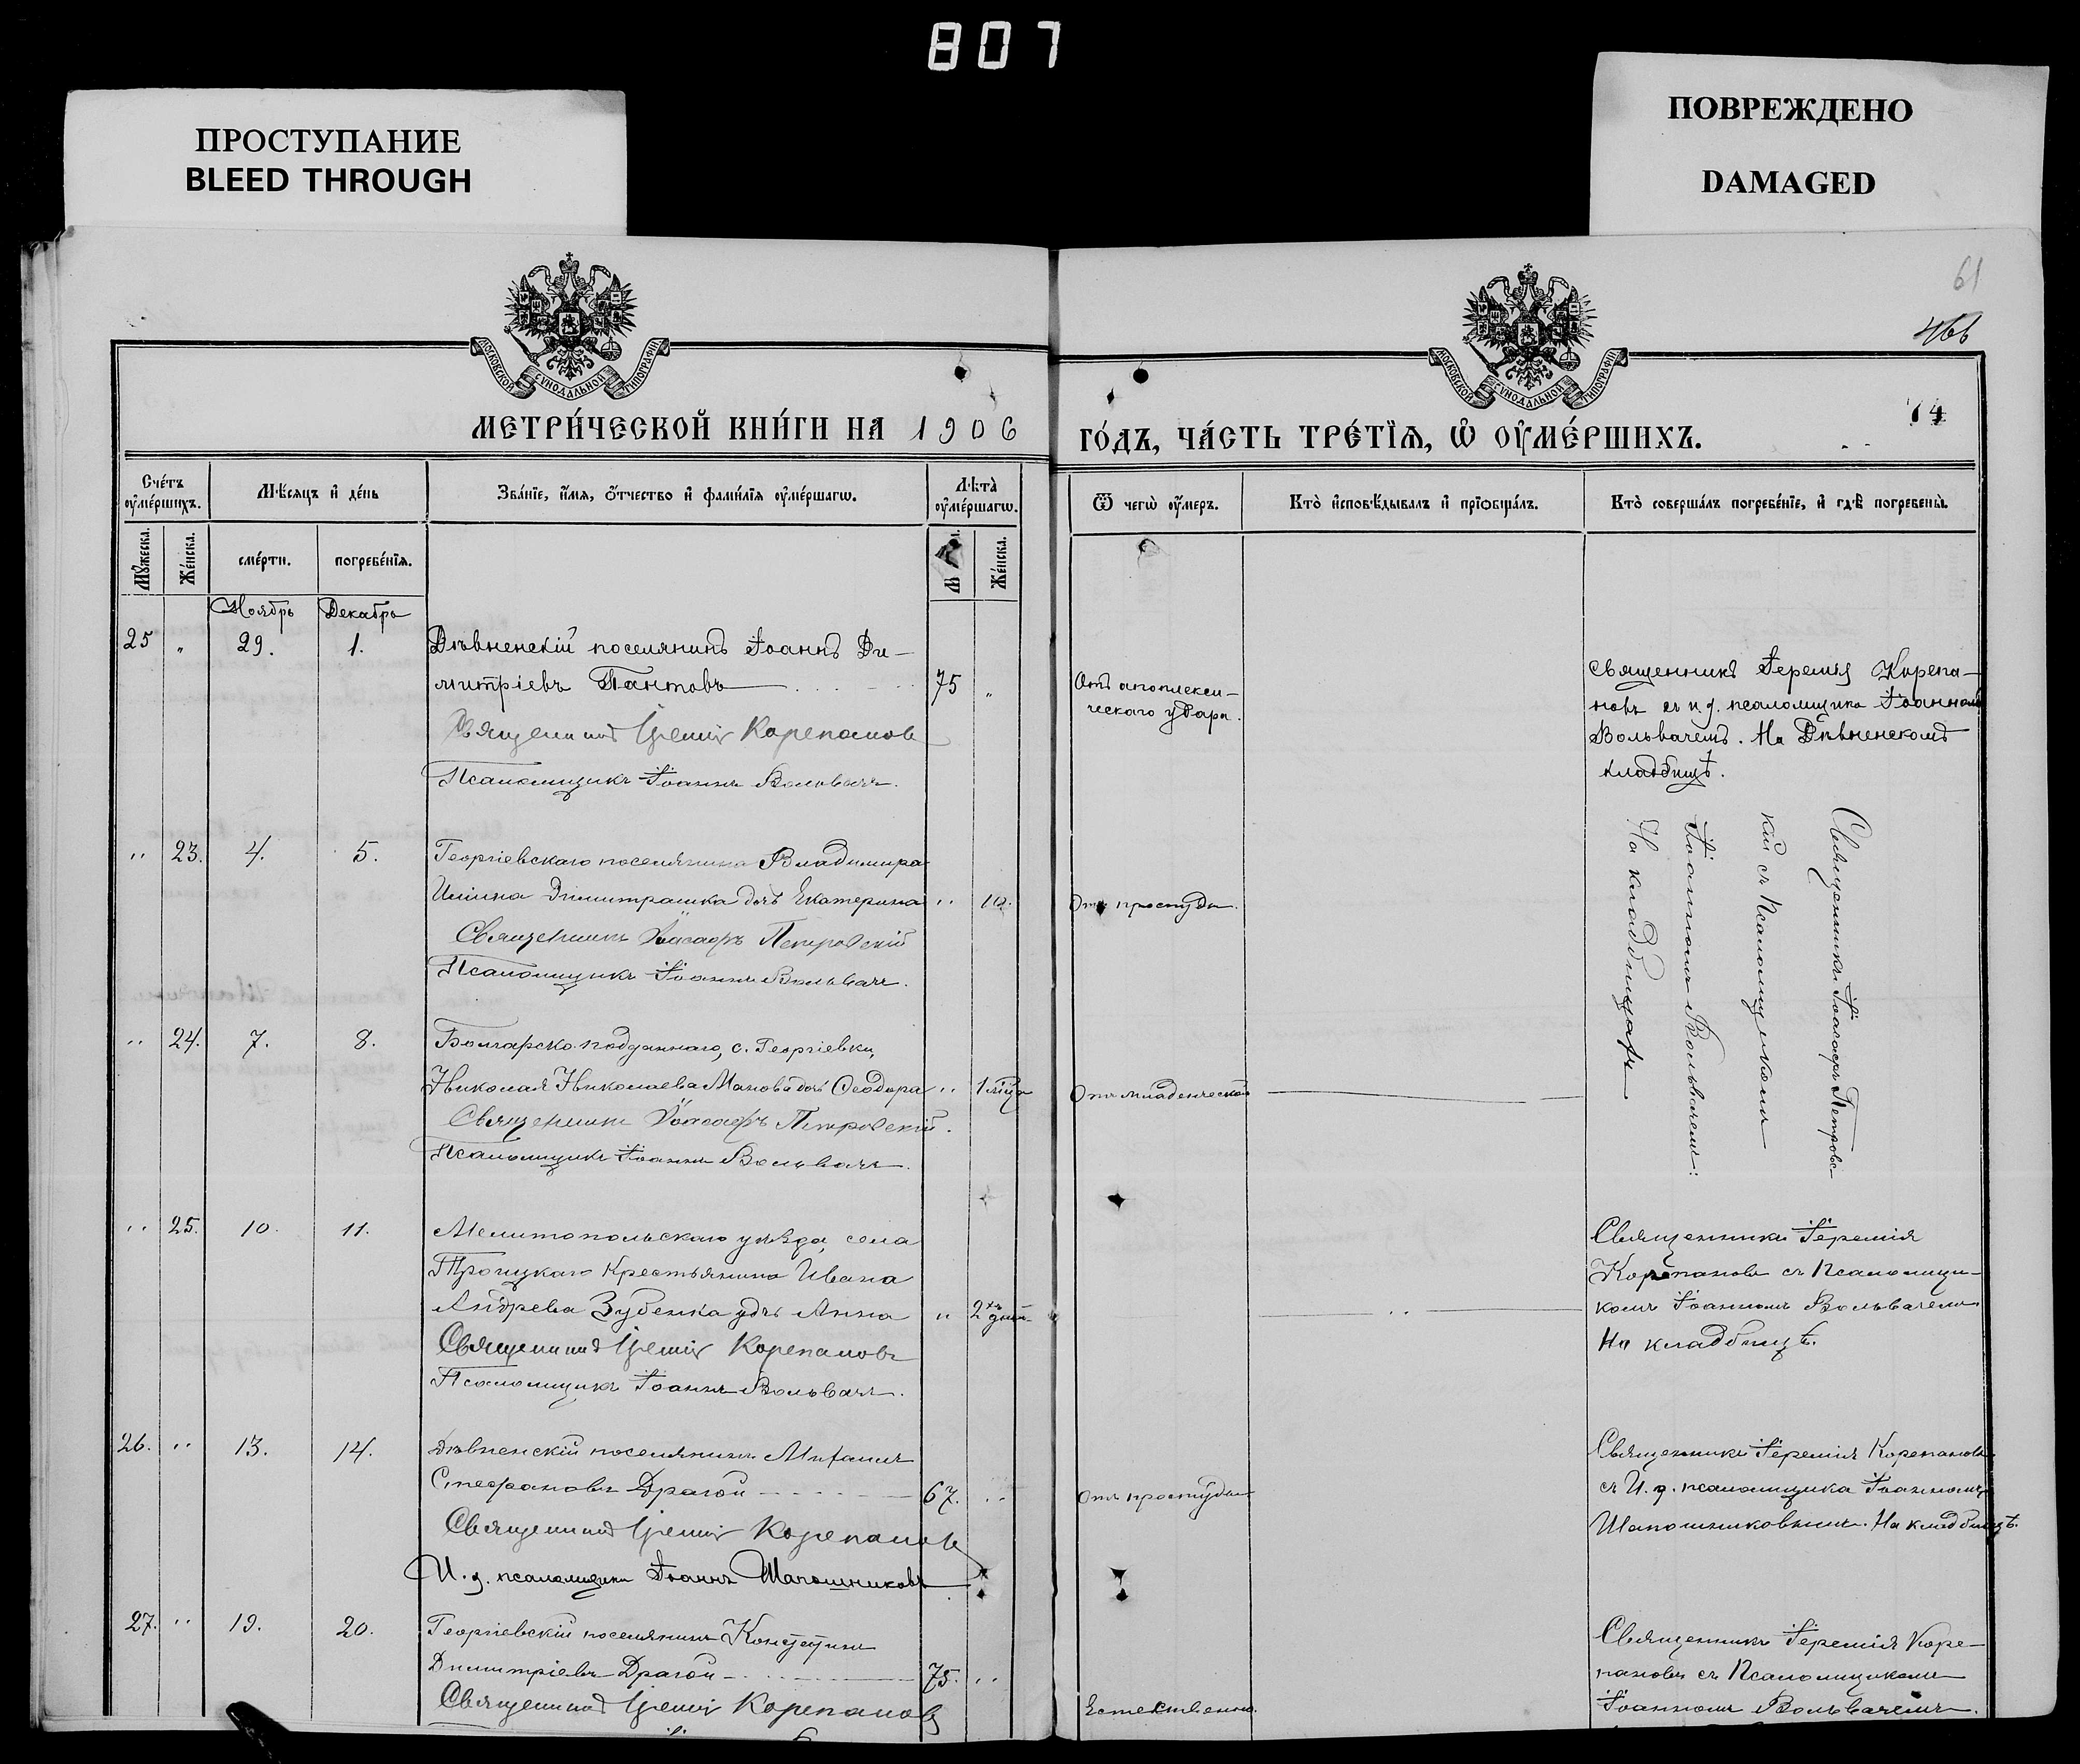 807
ПРОСТУПАНИЕ
BLEED THROUGH
ПОВРЕЖДЕНО
DAMAGED
61
466
74
МОСКОВСКОЙ СѴНОДАЛЬНОЙ ТИПОГРАФІИ
МОСКОВСКОЙ СѴНОДАЛЬНОЙ ТИПОГРАФІИ
МЕТРИ́ЧЕСКОЙ КНИ́ГИ НА 1906
ГО́ДЪ, ЧА́СТЬ ТРЕ́ТЇѦ, Ѡ҆ ОУ҆МЕ́РШИХЪ.
Сче́тъ оу҆ме́ршихъ.
Мѣ́сѧцъ и҆ де́нь
Зва́нїе, и҆́мѧ, ѻ҆́тчество и҆ фами́лїѧ оу҆ме́ршагѡ.
Лѣ̑та оу҆ме́ршагѡ.
Ѿ чегѡ̀ оу҆́меръ.
Кто̀ и҆сповѣ́дывалъ и҆ прїѡбща́лъ.
Кто̀ соверша́лъ погребе́нїе, и҆ гдѣ̀ погребены̀.
Мꙋ́жеска.
Же́нска.
сме́рти.
погребе́нїѧ.
Же́нска.
Ноябрь
Декабрь
25 " 29. 1. Дѣвненскій поселянинъ Іоаннъ Ди-
митріевъ Пантовъ 75 "
Священникъ Іеремія Корепановъ
Псаломщикъ Іоаннъ Вольвачъ.
Отъ апоплекси-
ческаго удара.
Священникъ Іеремія Корепа-
новъ съ и. д. псаломщика Іоанномъ
Вольвачемъ. На Дѣвненскомъ
кладбищѣ.
" 23. 4. 5. Георгіевскаго поселянина Владимира
Ильина Димитрашка дочь Екатерина " 10.
Священникъ Іоасафъ Петровскій
Псаломщикъ Іоаннъ Вольвачъ.
Отъ простуды.
Священникъ Іоасафъ Петровс-
кій съ Псаломщикомъ
Іоанномъ Вольвачемъ.
На кладбищахъ
" 24. 7. 8. Болгарско-подданнаго, с. Георгіевки,
Николая Николаева Манова дочь Ѳеодора " 1 мѣсяца
Священникъ Іоасафъ Петровскій.
Псаломщикъ Іоаннъ Вольвачъ.
Отъ младенческой
" 25. 10. 11. Мелитопольскаго уѣзда, села
Троицкаго Крестьянина Ивана
Андреева Зубенка дчь Анна " 2хъ дней
Священникъ Іеремія Корепановъ
Псаломщикъ Іоаннъ Вольвачъ.
Священникъ Іеремія
Корепановъ съ Псаломщи-
комъ Іоанномъ Вольвачемъ
На кладбищѣ.
26. " 13. 14. Дѣвненскій поселянинъ Михаилъ
Стефановъ Драгой 67. "
Священникъ Іеремія Корепановъ
И. д. псаломщика Іоаннъ Шапошниковъ
Отъ простуды
Священникъ Іеремія Корепановъ
съ И. д. псаломщика Іоанномъ
Шапошниковымъ. На кладбищѣ.
27. " 19. 20. Георгіевскій поселянинъ Констунтинъ
Димитріевъ Драгой 75. "
Священникъ Іеремія Корепановъ
Естественно.
Священникъ Іеремія Коре-
пановъ съ Псаломщикомъ
Іоанномъ Вольвачемъ.